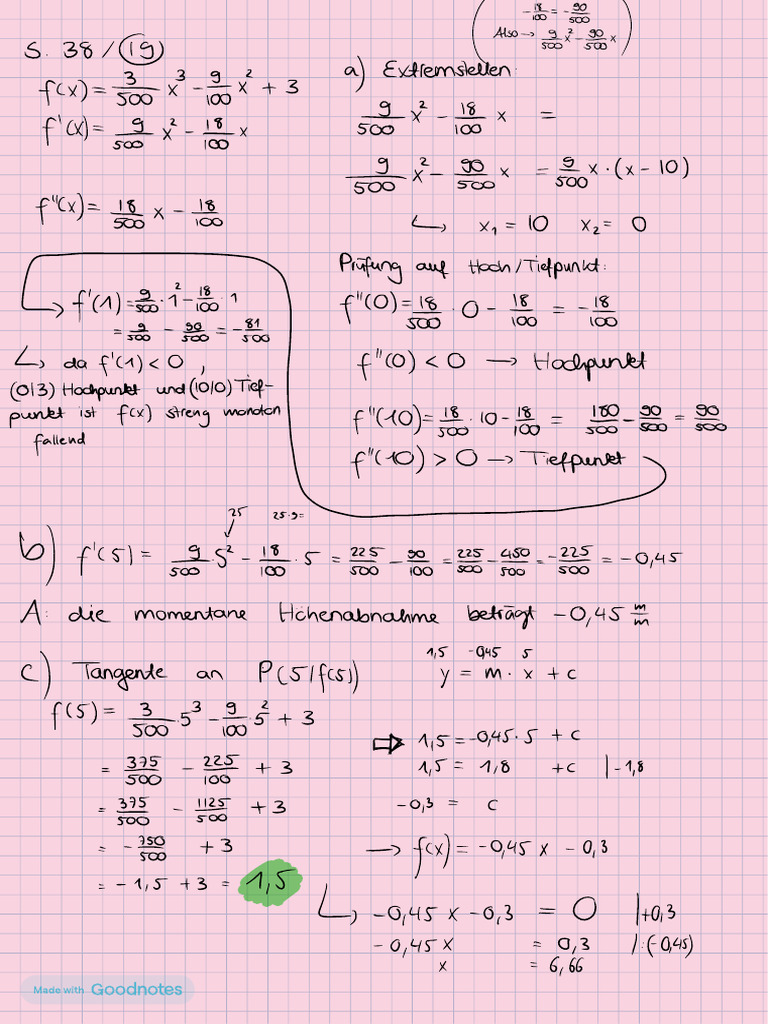 -18/100 = -90/500
Also → 9/500 x² - 90/500 x
S. 38 / 19
f(x) = 3/500 x³ - 9/100 x² + 3
f'(x) = 9/500 x² - 18/100 x
f''(x) = 18/500 x - 18/100
a) Extremstellen:
9/500 x² - 18/100 x =
9/500 x² - 90/500 x = 9/500 x · (x - 10)
↳ x₁ = 10 x₂ = 0
Prüfung auf Hoch/Tiefpunkt:
f''(0) = 18/500 · 0 - 18/100 = - 18/100
f''(0) < 0 → Hochpunkt
f''(10) = 18/500 · 10 - 18/100 = 180/500 - 90/500 = 90/500
f''(10) > 0 → Tiefpunkt
→ f'(1) = 9/500 · 1² - 18/100 · 1
= 9/500 - 90/500 = -81/500
↳ da f'(1) < 0 ,
(0|3) Hochpunkt und (10|0) Tief-
punkt ist f(x) streng monoton
fallend
25 25·9=
b) f'(5) = 9/500 · 5² - 18/100 · 5 = 225/500 - 90/100 = 225/500 - 450/500 = -225/500 = -0,45
A: die momentane Höhenabnahme beträgt -0,45 m/m
c) Tangente an P(5/f(5))
f(5) = 3/500 · 5³ - 9/100 · 5² + 3
= 375/500 - 225/100 + 3
= 375/500 - 1125/500 + 3
= - 750/500 + 3
= -1,5 + 3 = 1,5
1,5 -0,45 5
y = m · x + c
⇒ 1,5 = -0,45 · 5 + c
1,5 = 1,8 + c | -1,8
-0,3 = c
→ f(x) = -0,45 x - 0,3
↳ -0,45 x - 0,3 = 0 | +0,3
-0,45 x = 0,3 | : (-0,45)
x = 6,66
Made with Goodnotes